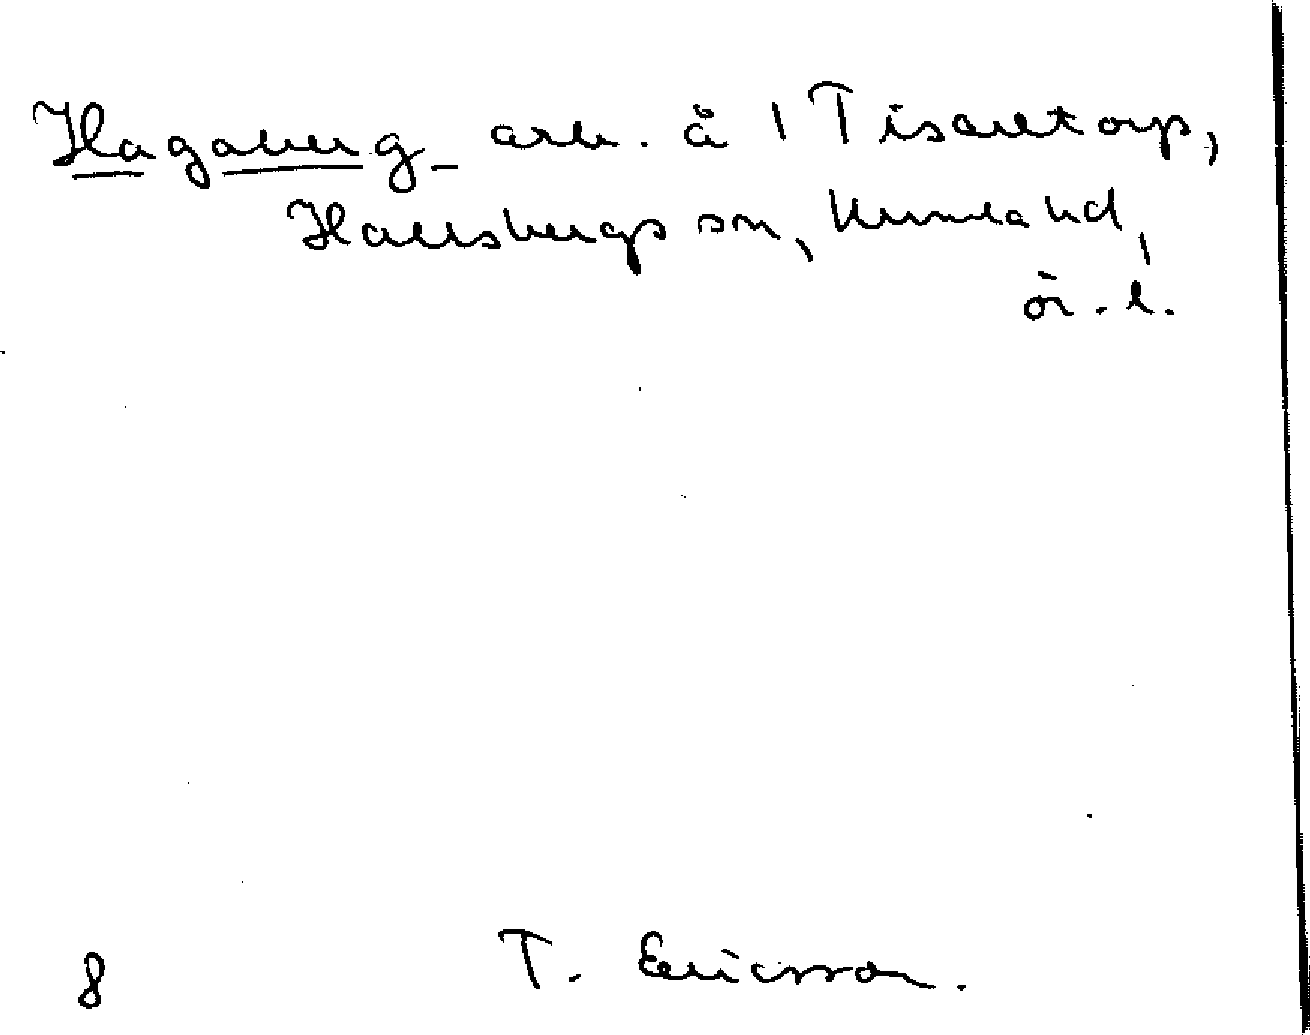 Hagaberg - arb. å 1 Tisaretorp,
Hallsbergs sn, Kumla hd,
ör. l.
8 T. Ericsson.